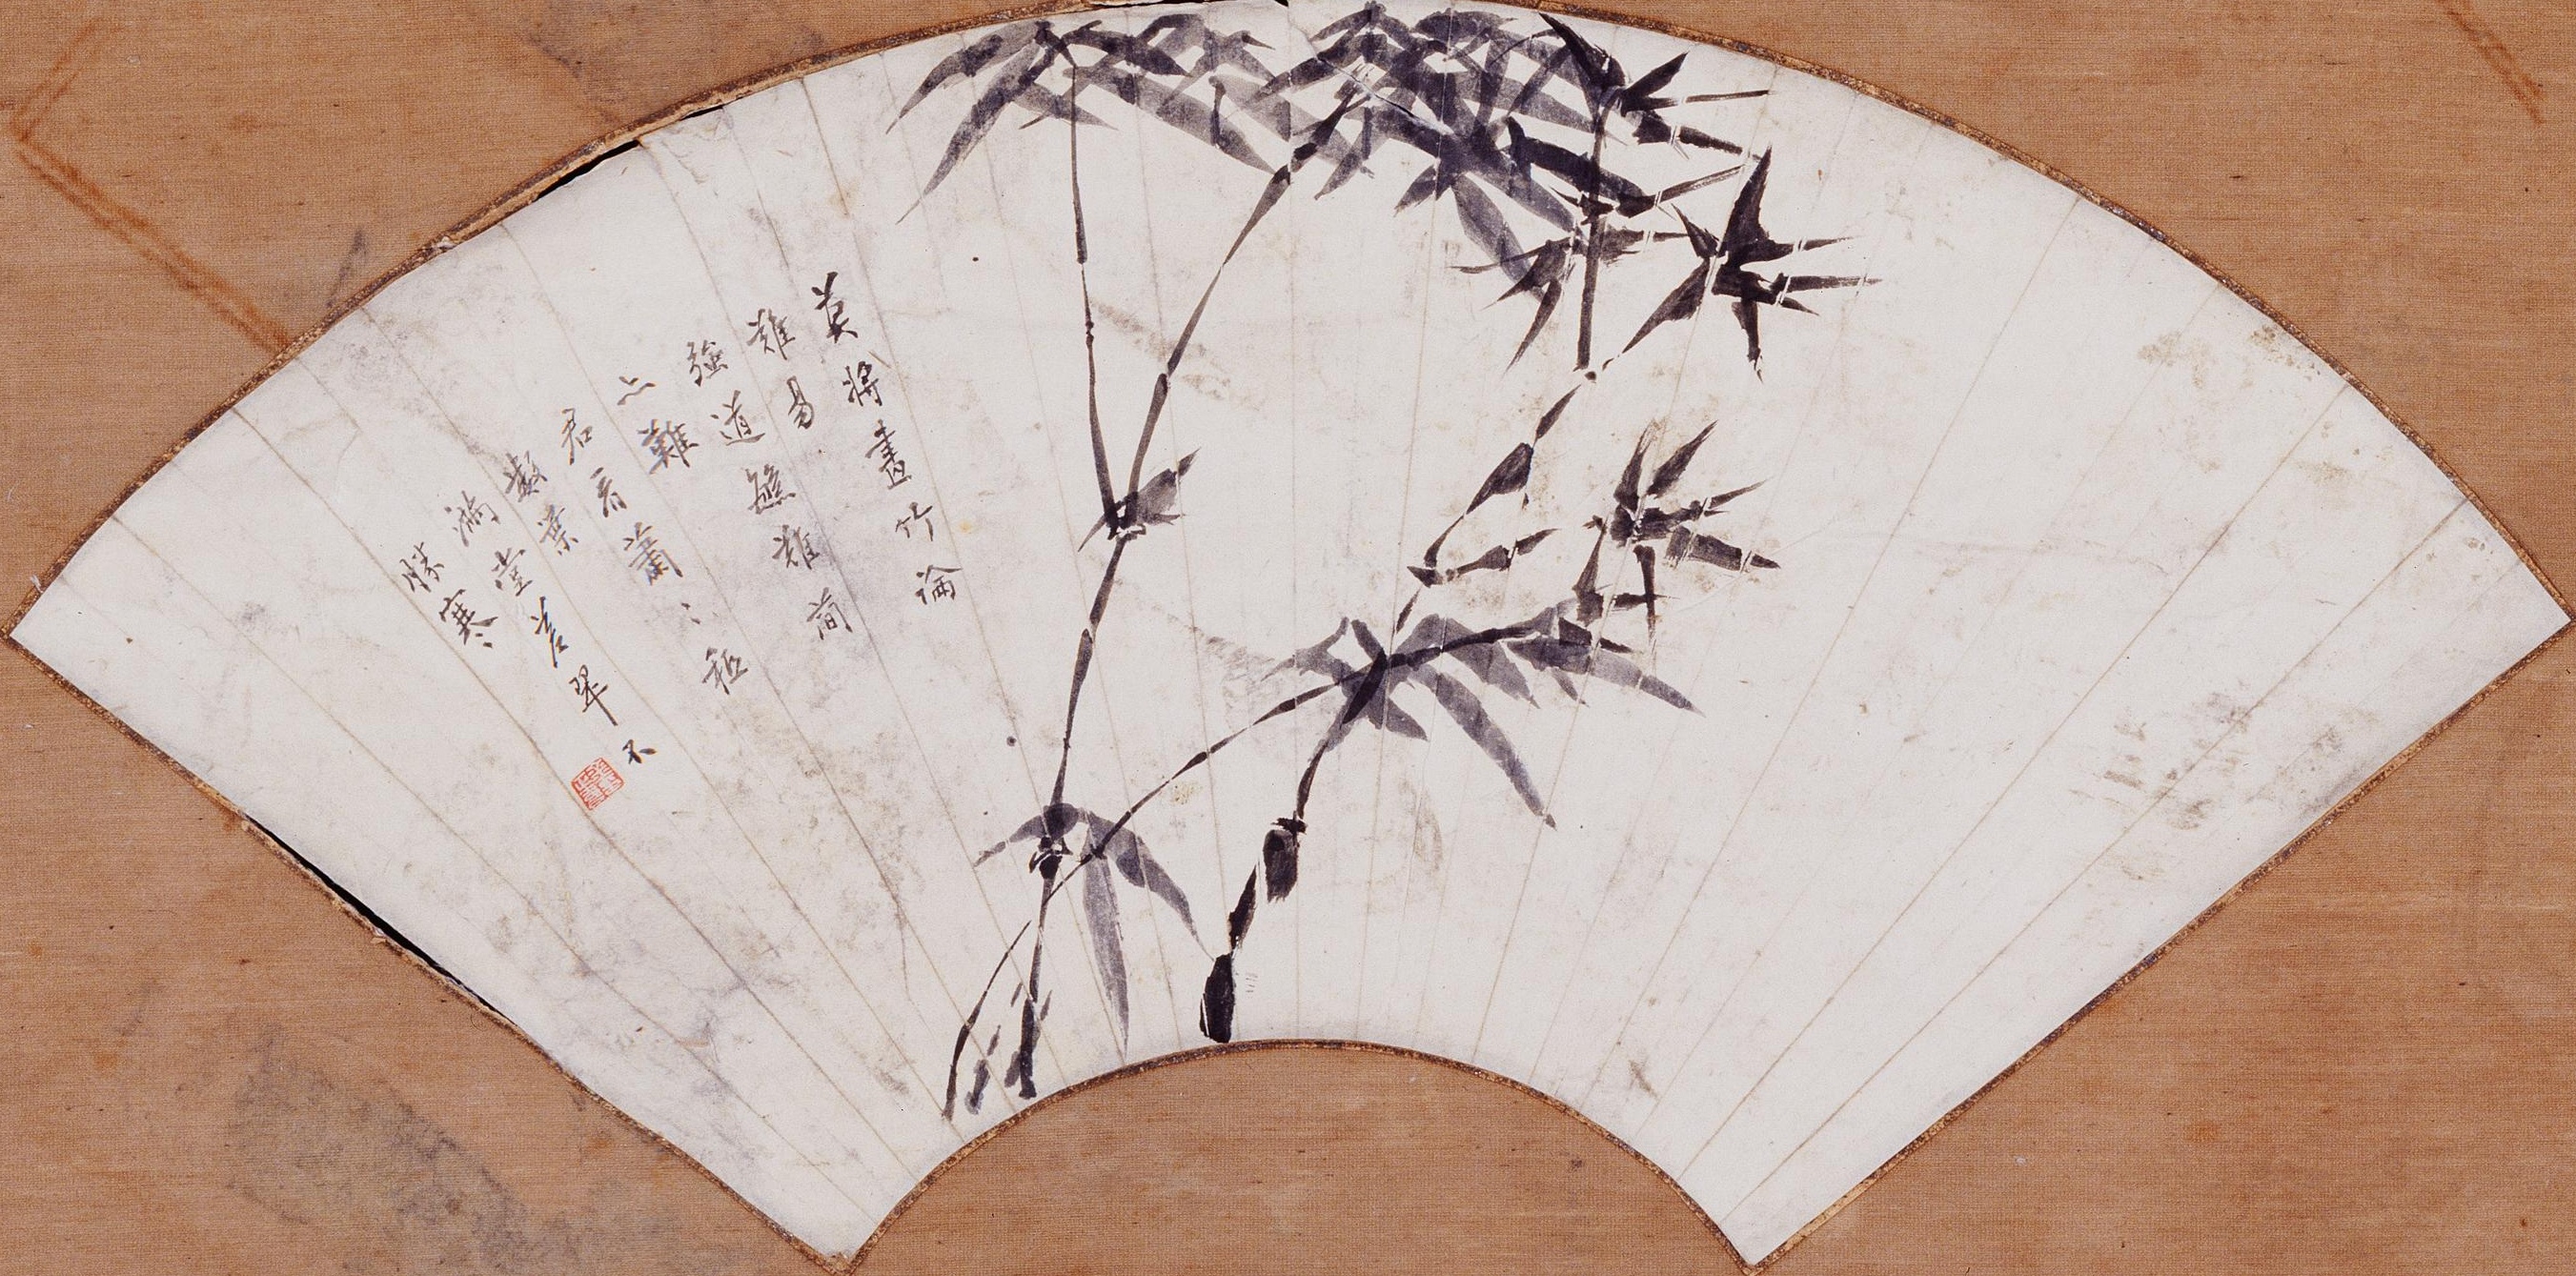 莫將畫竹論
難易
強道繁難簡
亦難
君看蕭〻秪
數葉
滿堂蒼翠不
勝寒